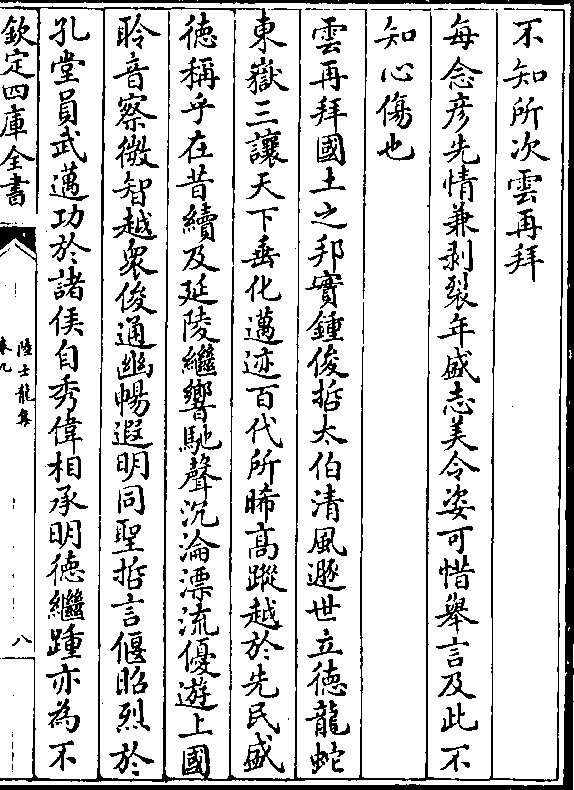 不知所次雲再拜
每念彦先情兼剥裂年盛志美令姿可惜舉言及此不
知心傷也
雲再拜國土之邦實鍾俊哲太伯清風遯世立徳龍蛇
東嶽三讓天下垂化邁迹百代所晞髙蹤越於先民盛
徳稱乎在昔續及延陵繼響馳聲沉淪漂流優遊上國
聆音察微智越衆俊通幽暢遐明同聖哲言偃昭烈於
孔堂員武邁功於諸侯自秀偉相承明徳繼踵亦為不
欽定四庫全書
陸士龍集
卷九
八